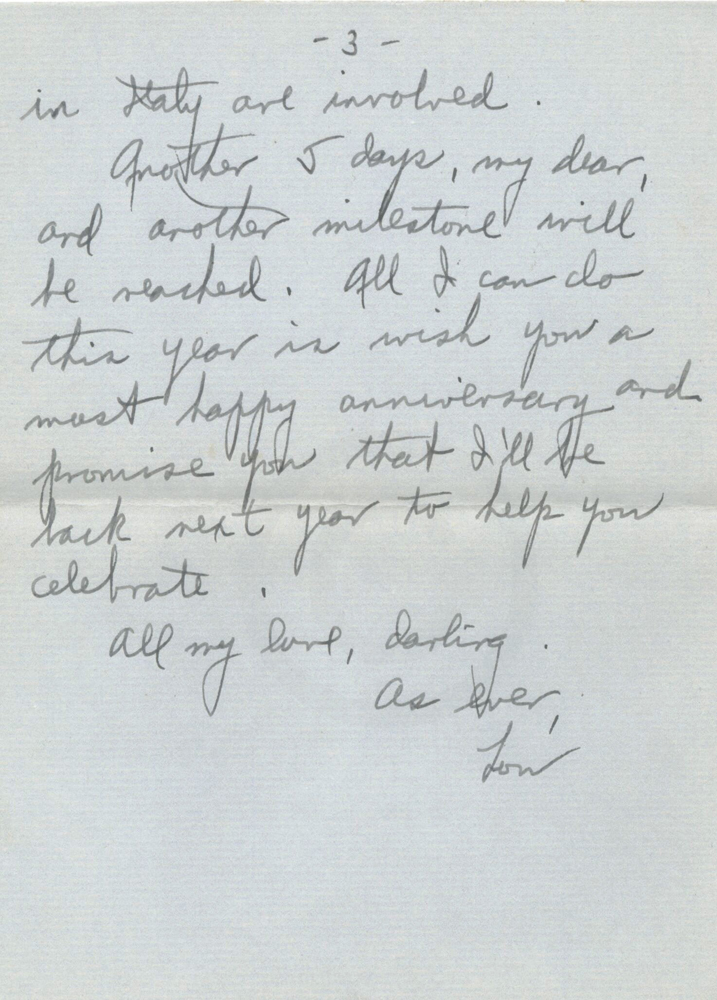 - 3 -
in Italy are involved.
Another 5 days, my dear,
and another milestone will
be reached. All I can do
this year is wish you a
most happy anniversary and
promise you that I'll be
back next year to help you
celebrate.
All my love, darling.
As ever,
Lou